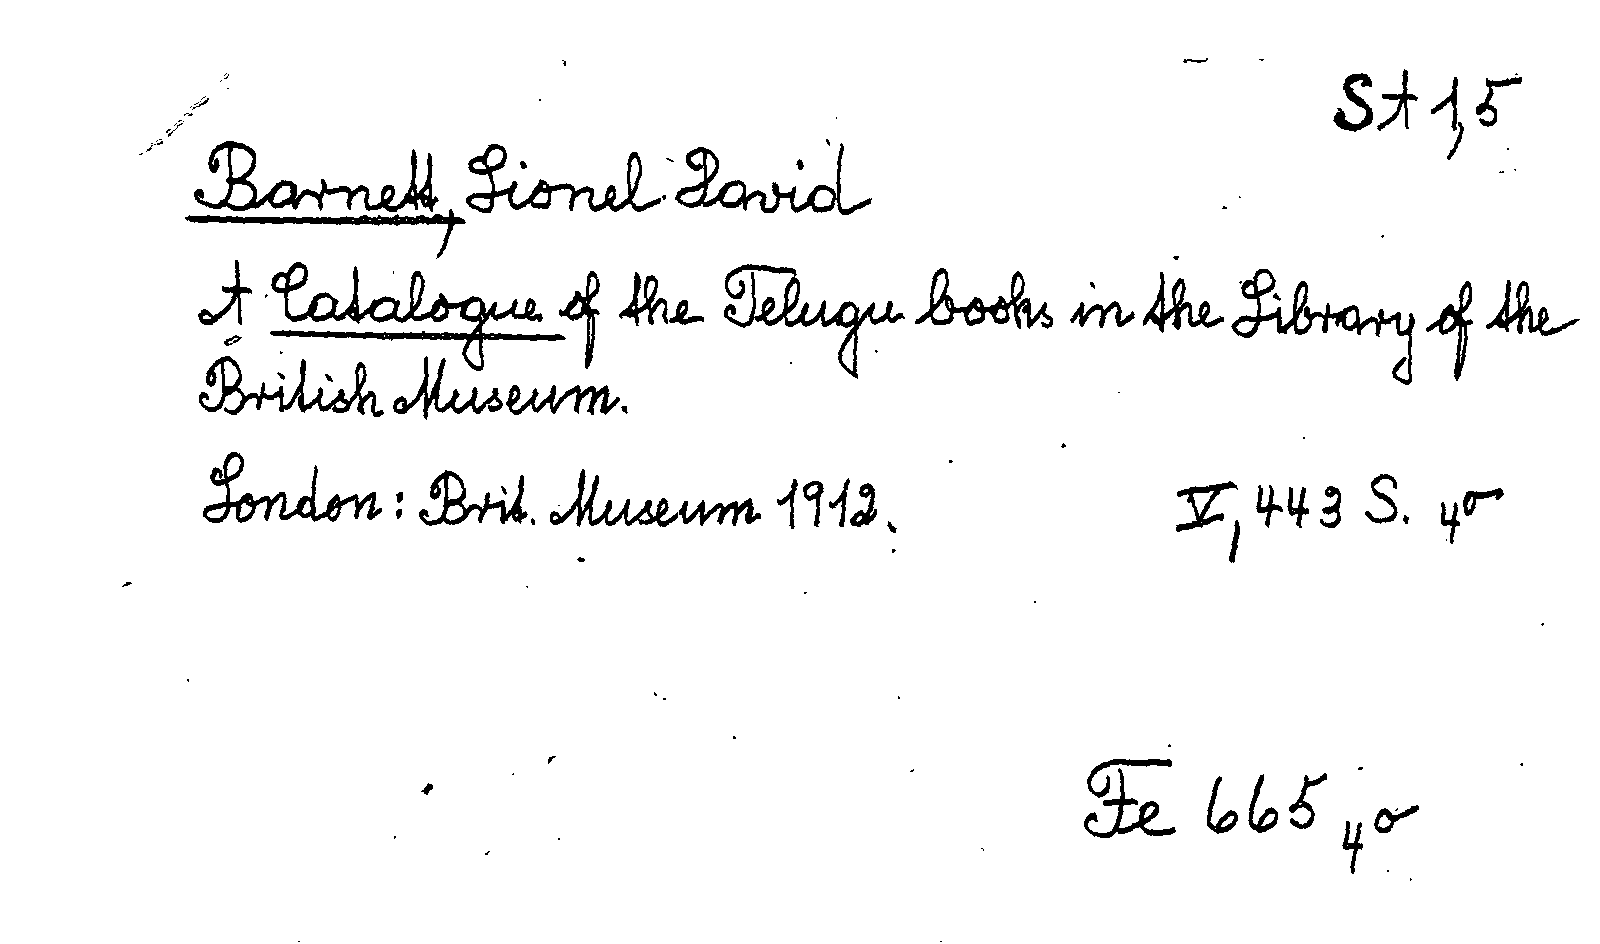 St 1,5
Barnett, Lionel David
A Catalogue of the Telugu books in the Library of the
British Museum.
London: Brit. Museum 1912. V, 443 S. 4°
Fe 665 4°